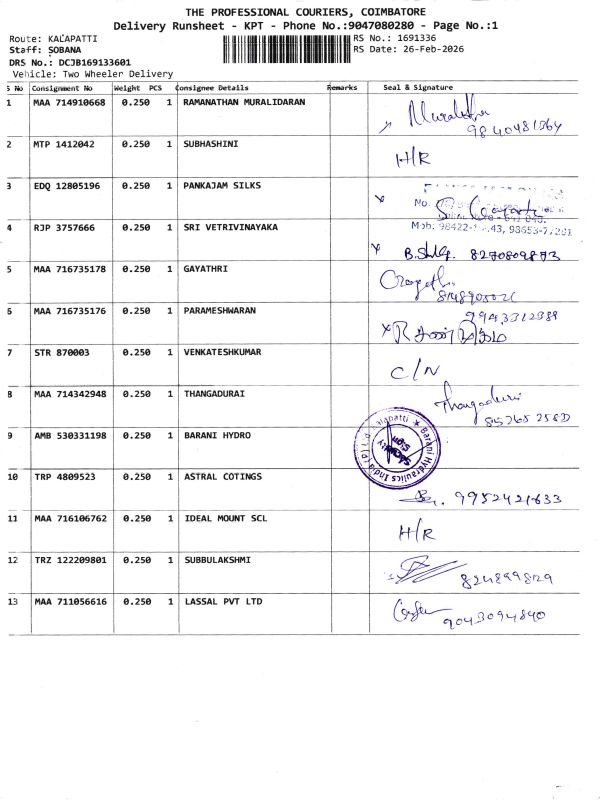 THE PROFESSIONAL COURIERS, COIMBATORE
Delivery Runsheet - KPT - Phone No.:9047080280 - Page No.:1
Route: KALAPATTI
RS No.: 1691336
Staff: SOBANA
RS Date: 26-Feb-2026
DRS No.: DCJB169133601
Vehicle: Two Wheeler Delivery
S No Consignment No Weight PCS Consignee Details Remarks Seal & Signature
1 MAA 714910668 0.250 1 RAMANATHAN MURALIDARAN
2 MTP 1412042 0.250 1 SUBHASHINI H/R
3 EDQ 12805196 0.250 1 PANKAJAM SILKS
4 RJP 3757666 0.250 1 SRI VETRIVINAYAKA
5 MAA 716735178 0.250 1 GAYATHRI
6 MAA 716735176 0.250 1 PARAMESHWARAN
7 STR 870003 0.250 1 VENKATESHKUMAR C/N
8 MAA 714342948 0.250 1 THANGADURAI Thangadurai
9 AMB 530331198 0.250 1 BARANI HYDRO Barani Hydraulics India (P) Ltd. Kalapatti
10 TRP 4809523 0.250 1 ASTRAL COTINGS 9952421633
11 MAA 716106762 0.250 1 IDEAL MOUNT SCL H/R
12 TRZ 122209801 0.250 1 SUBBULAKSHMI
13 MAA 711056616 0.250 1 LASSAL PVT LTD 9043094840